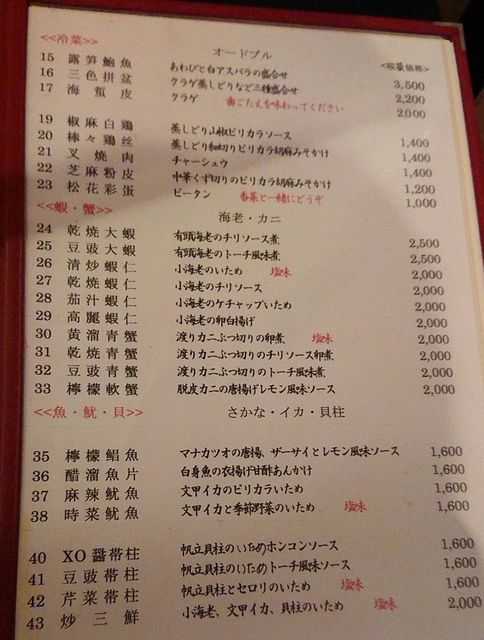 <<冷菜>> オードブル <税抜価格>
15 露笋鮑魚 あわびと白アスパラの盛合せ 3,500
16 三色拼盆 クラゲ蒸しどりなど三種盛合せ 2,200
17 海蜇皮 クラゲ 歯ごたえを味わってください 2,000
19 椒麻白鶏 蒸しどり山椒ピリカラソース 1,400
20 棒々鶏丝 蒸しどり細切りピリカラ胡麻みそかけ 1,400
21 叉燒肉 チャーシュウ 1,400
22 芝麻粉皮 中華くず切りのピリカラ胡麻みそかけ 1,200
23 松花彩蛋 ピータン 香菜と一緒にどうぞ 1,000
<<蝦・蟹>> 海老・カニ
24 乾燒大蝦 有頭海老のチリソース煮 2,500
25 豆豉大蝦 有頭海老のトーチ風味煮 2,500
26 清炒蝦仁 小海老のいため 塩味 2,000
27 乾燒蝦仁 小海老のチリソース 2,000
28 茄汁蝦仁 小海老のケチャップいため 2,000
29 高麗蝦仁 小海老の卵白揚げ 2,000
30 黄溜青蟹 渡りカニぶつ切りの卵煮 塩味 2,000
31 乾燒青蟹 渡りカニぶつ切りのチリソース卵煮 2,000
32 豆豉青蟹 渡りカニぶつ切りのトーチ風味煮 2,000
33 檸檬軟蟹 脱皮カニの唐揚げレモン風味ソース 2,000
<<魚・魷・貝>> さかな・イカ・貝柱
35 檸檬鯧魚 マナカツオの唐揚、ザーサイとレモン風味ソース 1,600
36 醋溜魚片 白身魚の衣揚げ甘酢あんかけ 1,600
37 麻辣魷魚 文甲イカのピリカラいため 1,600
38 時菜魷魚 文甲イカと季節野菜のいため 塩味 1,600
40 XO醤帯柱 帆立貝柱のいためホンコンソース 1,600
41 豆豉帯柱 帆立貝柱のいためトーチ風味煮 1,600
42 芹菜帯柱 帆立貝柱とセロリのいため 塩味 1,600
43 炒三鮮 小海老、文甲イカ、貝柱のいため 塩味 2,000